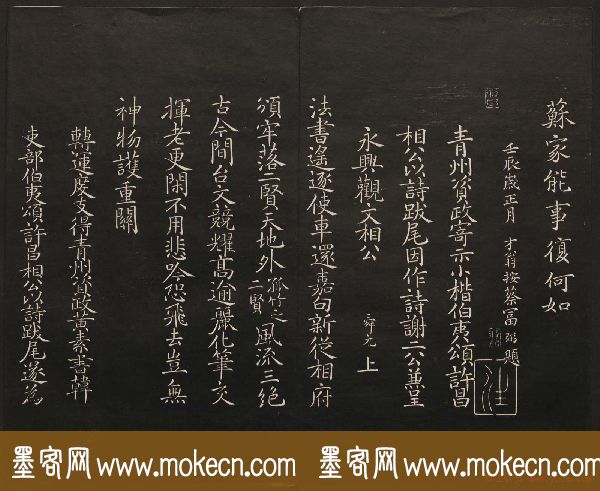 蘇家能事復何如
壬辰歲正月 才翁按蔡富弼題
青州資政寄示小楷伯夷頌許昌
相公以詩跋尾因作詩謝二公兼呈
永興觀文相公 舜元上
法書遙逐使車還嘉句新從相府
頒牢落二賢天地外孤竹之二賢風流三絕
古今間台文競耀高逾麗化筆交
揮老更閑不用悲吟恐飛去豈無
神物護重關
轉運度支得青州資政黃素書韓
吏部伯夷頌許昌相公以詩跋尾遂為
墨客网 www.mokecn.com 墨客网 www.mokecn.com